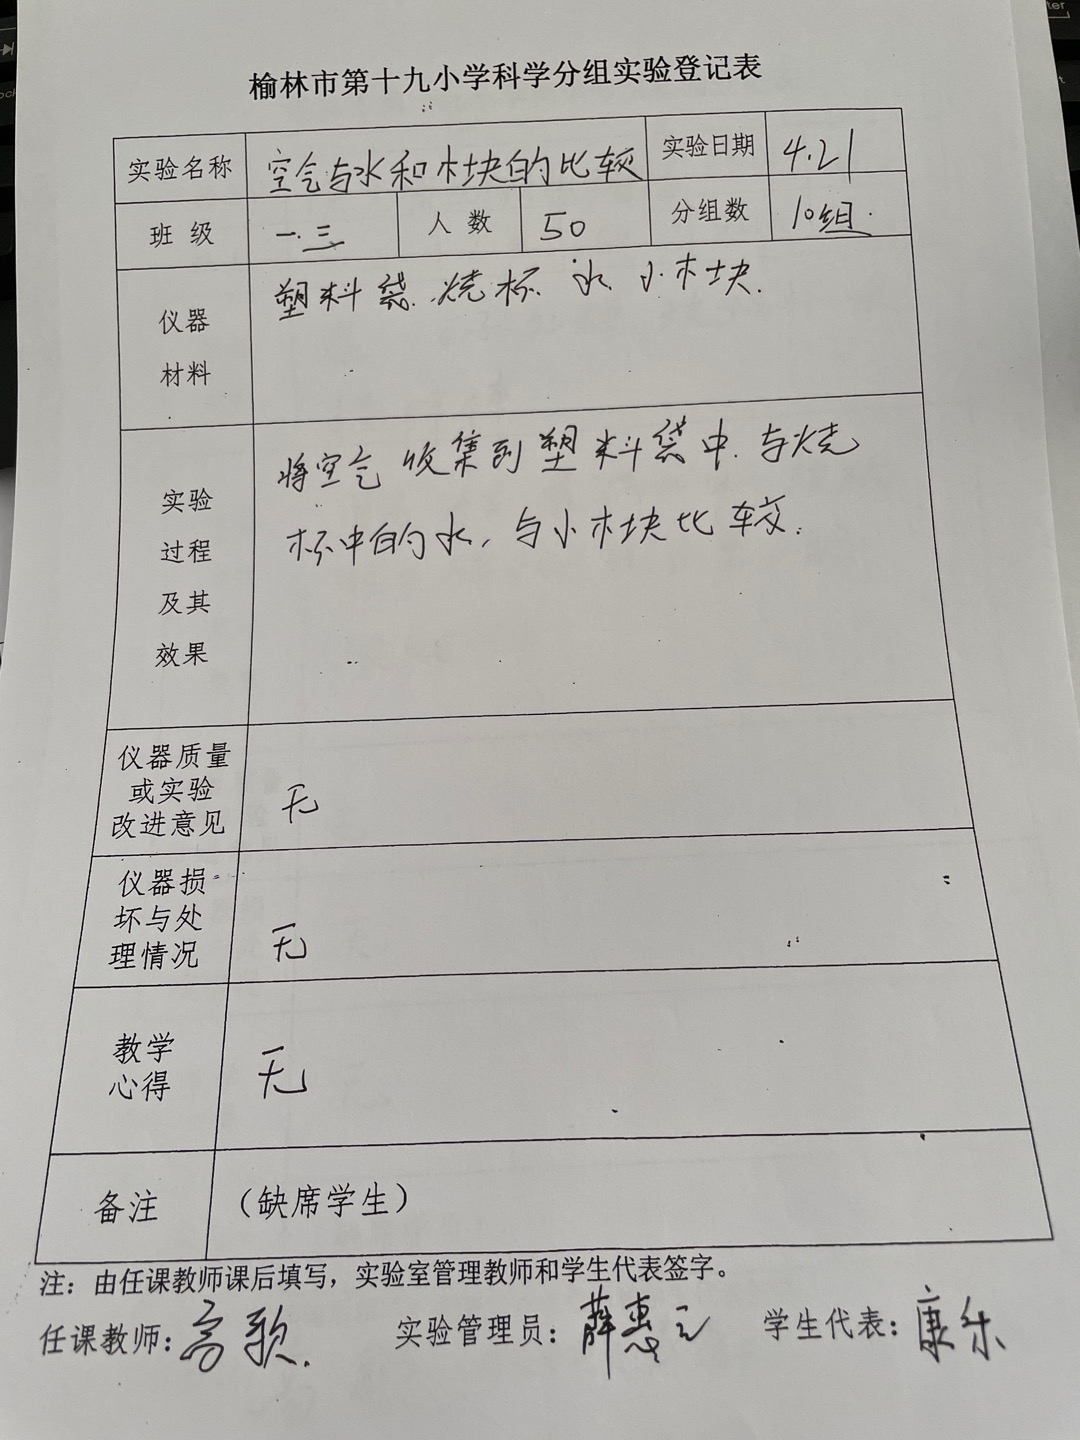 榆林市第十九小学科学分组实验登记表
实验名称 空气与水和木块的比较 实验日期 4.21
班 级 一.三 人 数 50 分组数 10组.
仪器
材料
塑料袋.烧杯.水.小木块.
实验
过程
及其
效果
将空气收集到塑料袋中.与烧
杯中的水,与小木块比较.
仪器质量
或实验
改进意见
无
仪器损
坏与处
理情况
无
教学
心得
无
备注 （缺席学生）
注：由任课教师课后填写，实验室管理教师和学生代表签字。
任课教师：高歌. 实验管理员：薛惠 学生代表：康乐